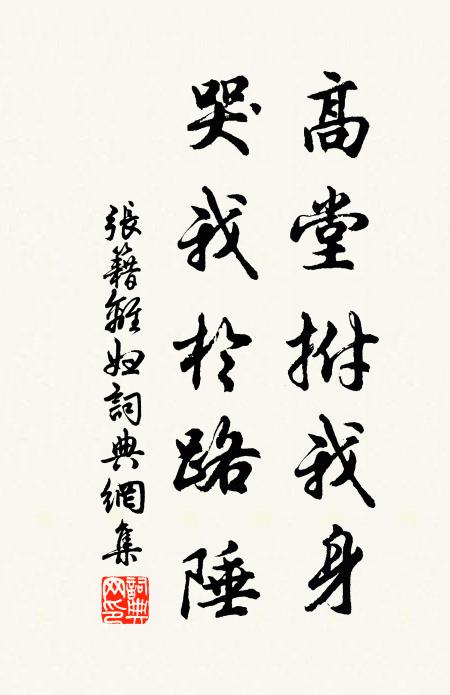 高堂拊我身
哭我於路陲
張籍離婦詞典網集
詞典網印